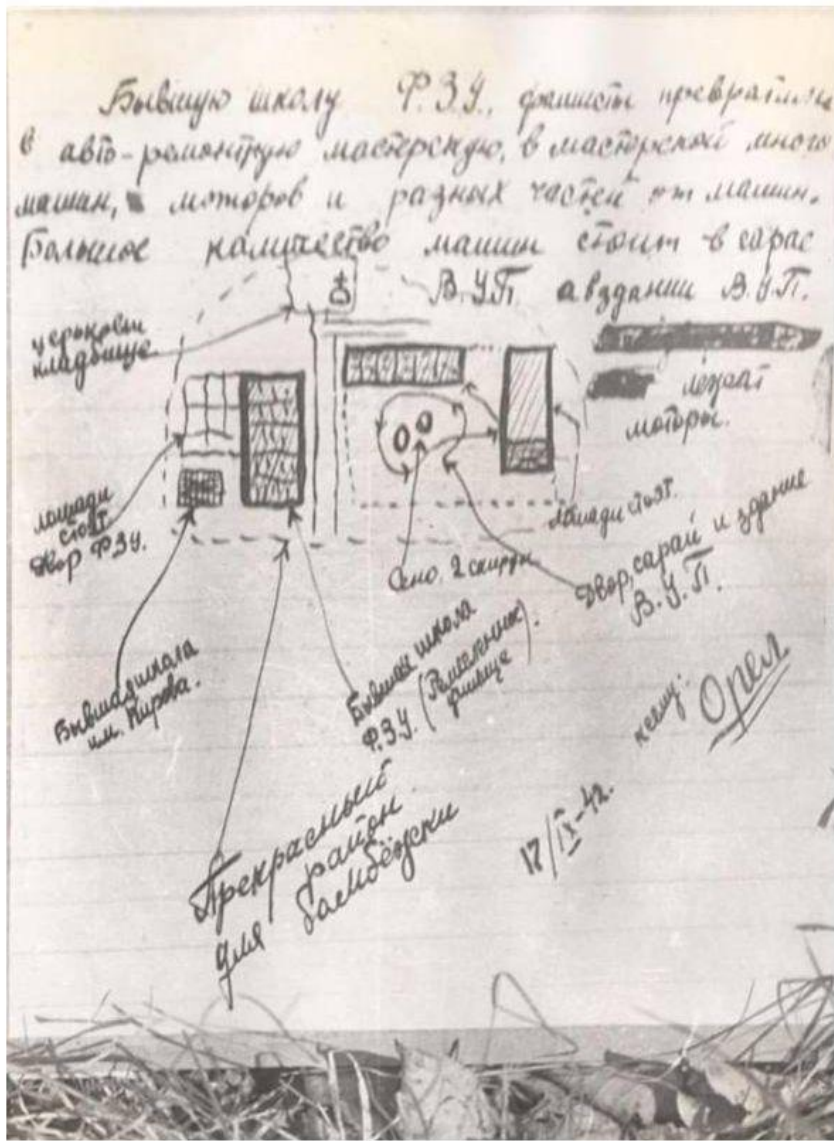 Бывшую школу Ф.З.У. фашисты превратили
в авто-ремонтную мастерскую, в мастерской много
машин, моторов и разных частей от машин.
Большое количество машин стоит в сарае
В.У.П. а в здании В.У.П.
лежат
моторы.
церковь
кладбище
лошади
стоят
Двор ФЗУ.
лошади стоят.
Сено. 2 скирды.
Двор, сарай и здание
В.У.П.
Бывшая школа
им. Кирова.
Бывшая школа
Ф.З.У.
Прекрасный
район
для бомбёжки
Орел
17/IX-42.